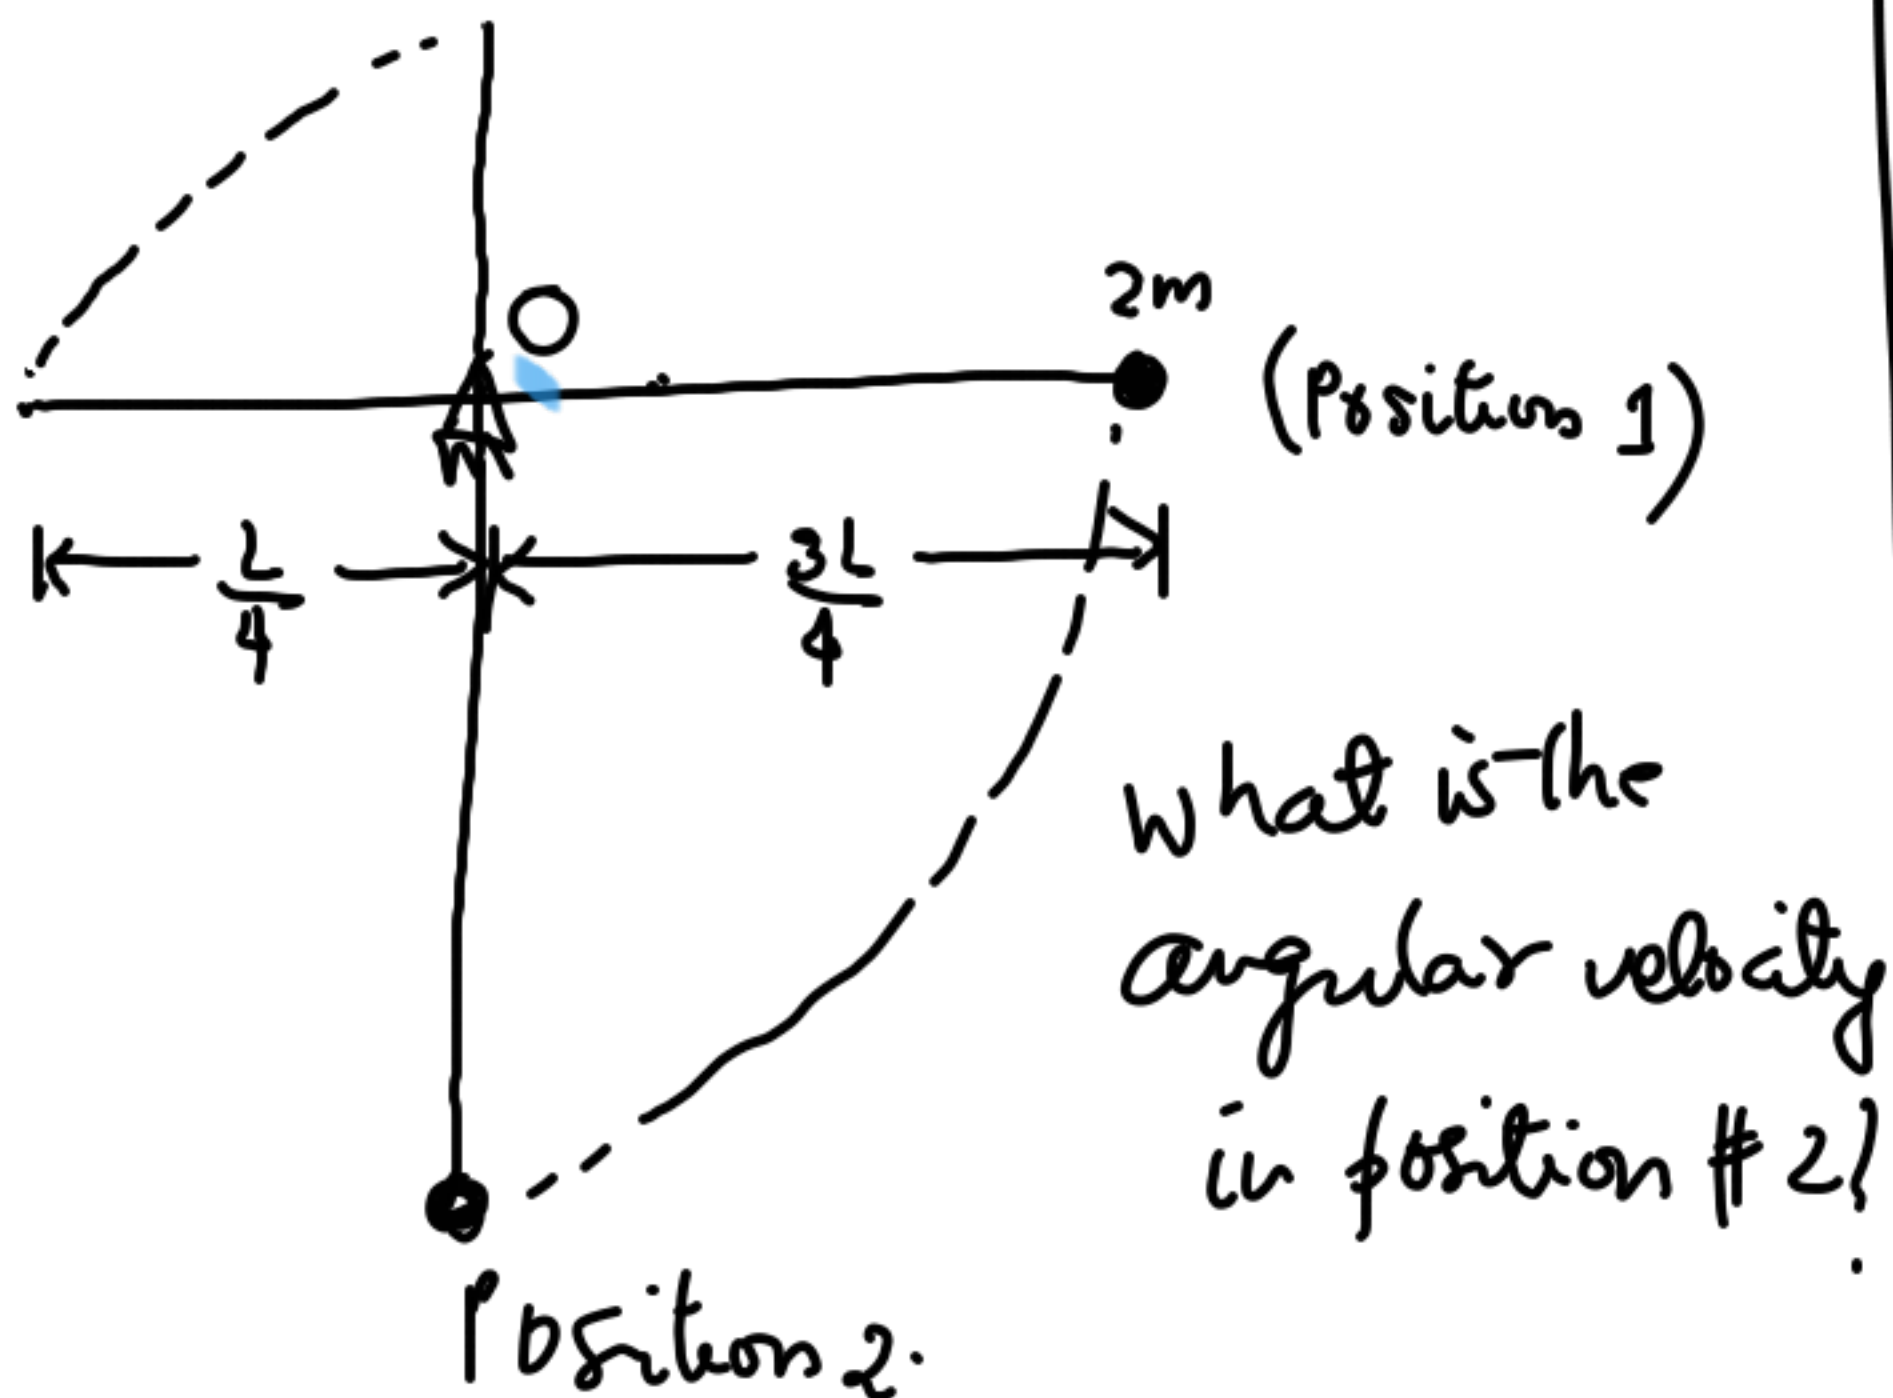 O
2m
(Position 1)
L/4
3L/4
What is the
angular velocity
in position # 2?
Position 2.